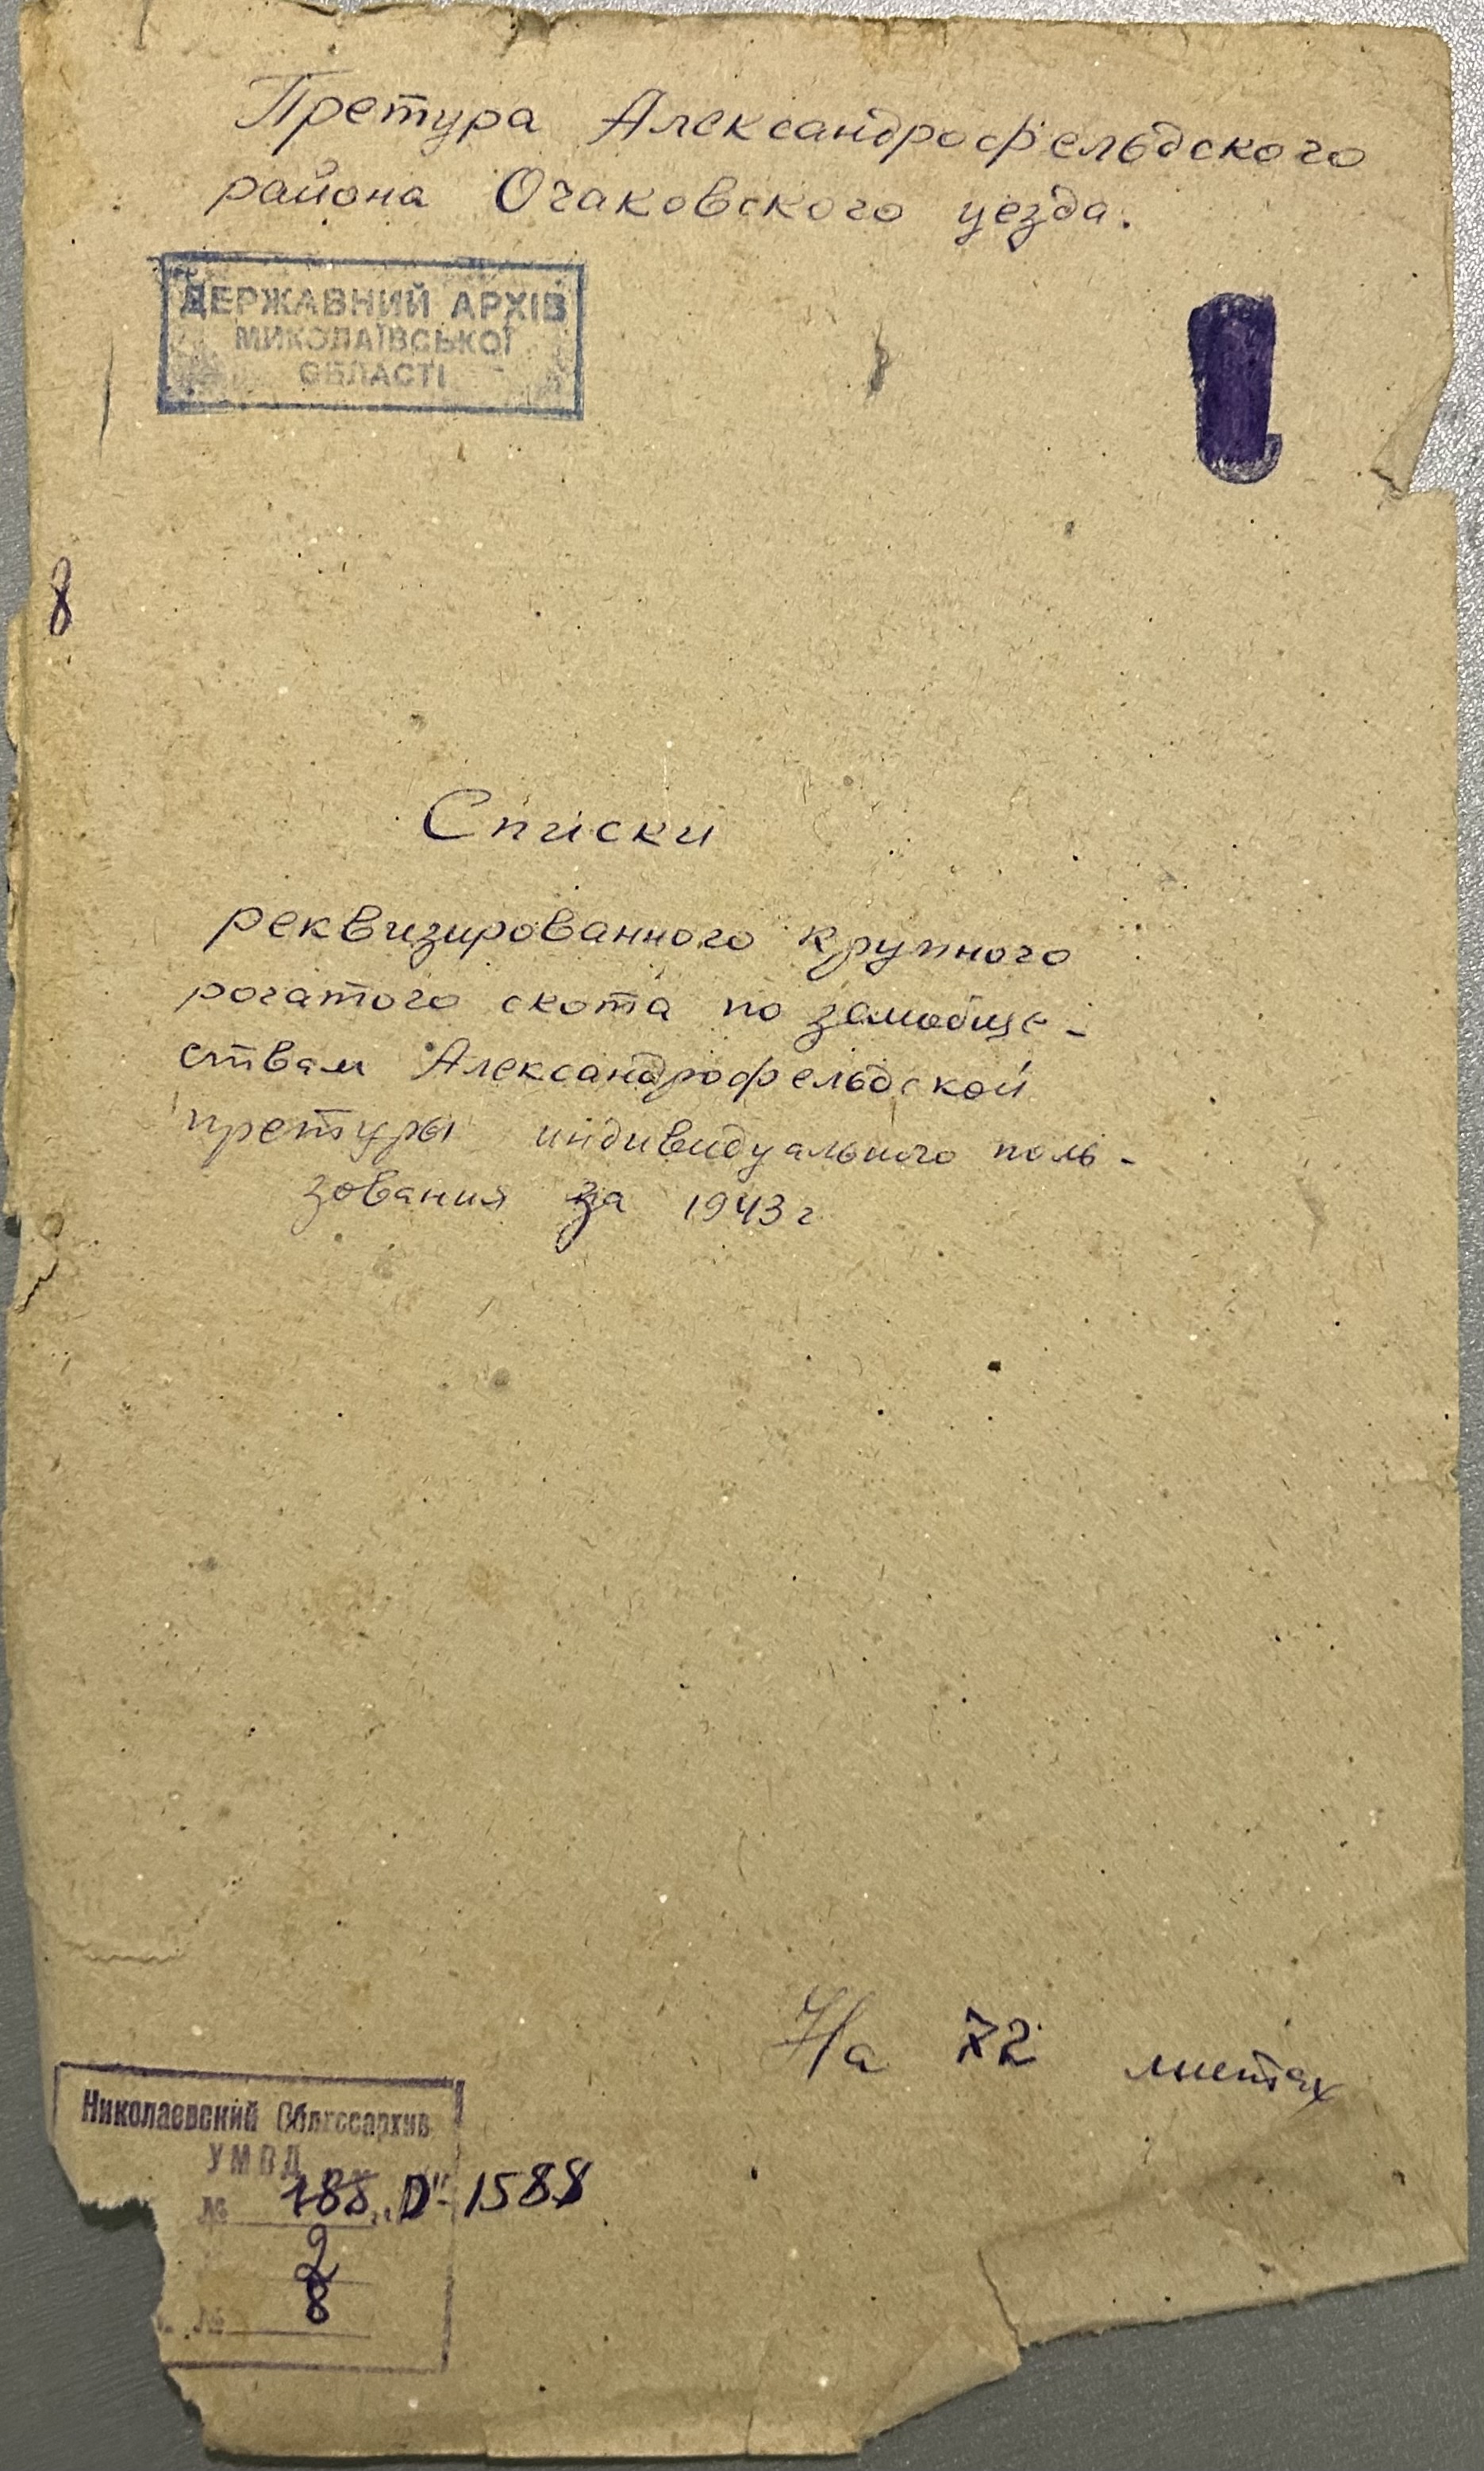 Претура Александрофельдского
района Очаковского уезда.
ДЕРЖАВНИЙ АРХІВ
МИКОЛАЇВСЬКОЇ
ОБЛАСТІ
8
Списки
реквизированного крупного
рогатого скота по земобще-
ствам Александрофельдской
претуры индивидуального поль-
зования за 1943 г
На 72 листах
Николаевский Облгосархив
УМВД
№ 188 1588
2
№ 8